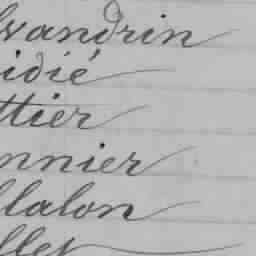 vandrin
idié
ttier
nnier
llalon
llet